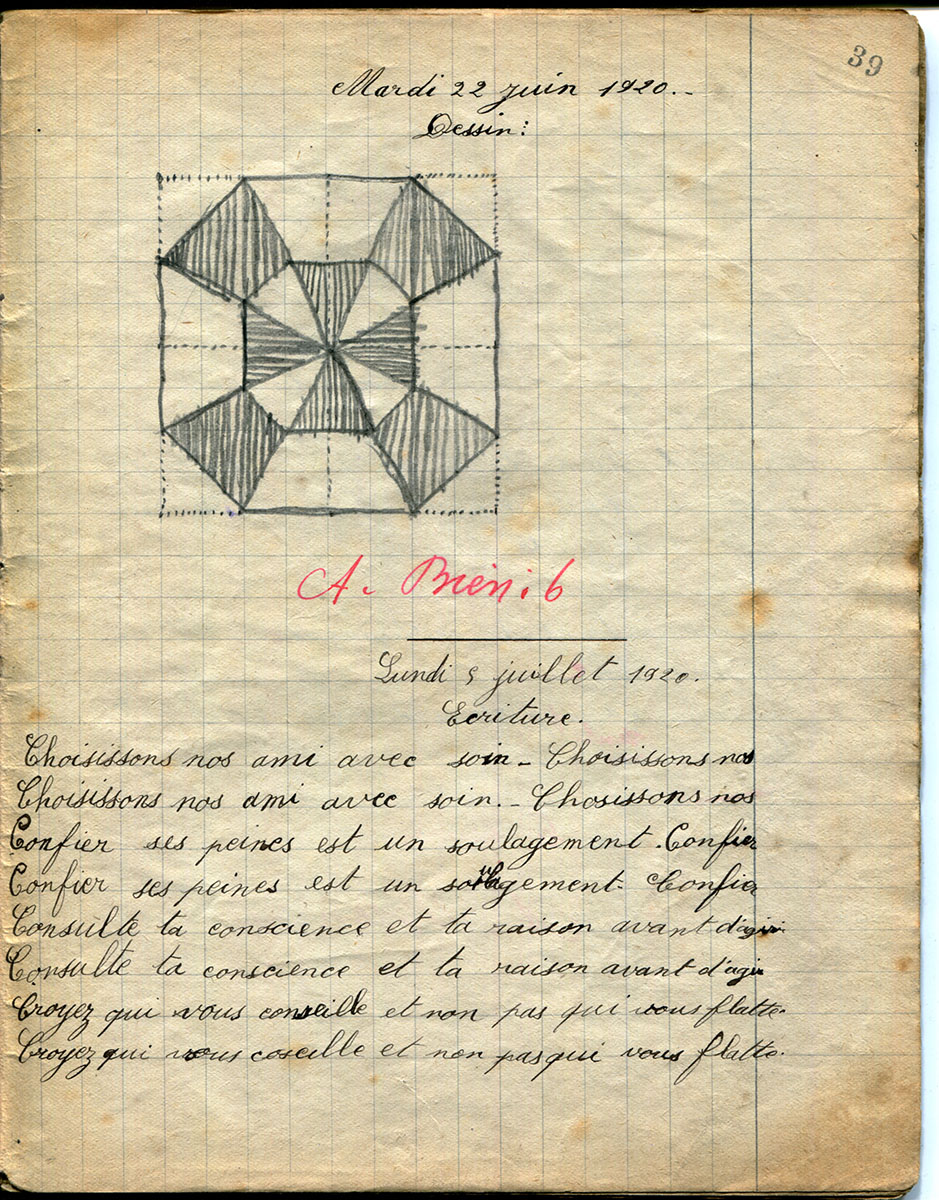 39
Mardi 22 juin 1920.-
Dessin:
A. Bien: 6
Lundi 5 juillet 1920.
Ecriture.
Choisissons nos ami avec soin - Choisissons nos
Choisissons nos ami avec soin. - Chosissons nos
Confier ses peines est un soulagement. Confier
Confier ses peines est un soulagement - Confier
Consulte ta conscience et ta raison avant d'agir.
Consulte ta conscience et ta raison avant d'agir
Croyez qui vous conseille et non pas qui vous flatte.
Croyez qui vous coseille et non pas qui vous flatte.